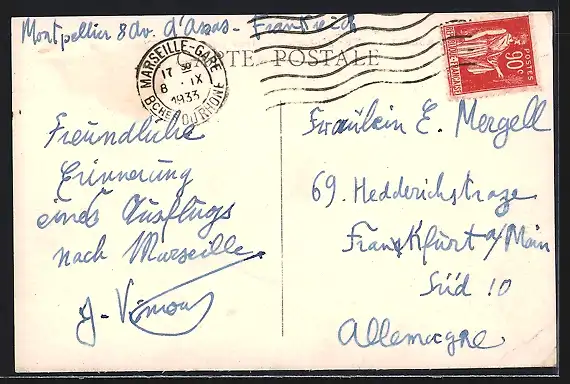 Montpellier 8 Av. d'Assas - Frankreich
CARTE POSTALE
MARSEILLE-GARE
17 30
8 - IX
1933
BCHES DU RHONE
POSTES
90c
Freundliche
Erinnerung
eines Ausflugs
nach Marseille.
Fräulein E. Mergell
69. Hedderichstraze
Frankfurt a/Main
Süd 10
Allemagne